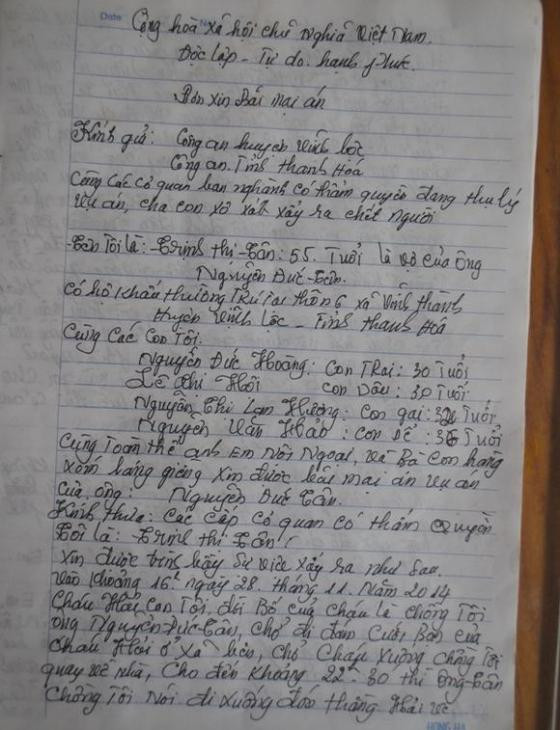 Date No
Cộng hoà xã hội chủ nghĩa Việt Nam.
Độc lập - Tự do. hạnh phúc.
Đơn xin Bãi mại án
Kính gửi: Công an huyện Vĩnh Lộc
Công an Tỉnh Thanh Hoá
Cùng Các cơ quan ban nghành có thẩm quyền đang thụ lý
vụ án, cha con xô xát xảy ra chết người
-Tên Tôi là: Trịnh thị Tân: 55. Tuổi là vợ của ông
Nguyễn Đức Tân.
Có hộ khẩu thường Trú tại thôn 6 xã Vĩnh thành
Huyện Vĩnh Lộc - Tỉnh thanh Hoá
Cùng Các Con Tôi.
Nguyễn Đức Hoàng: Con Trai: 30 Tuổi
Lê Thị Hồi Con Dâu: 30 Tuổi
Nguyễn Thị Lan Hương: Con gái: Tuổi
Nguyễn Văn Hảo: Con rể: Tuổi
Cùng Toàn thể anh Em Nội Ngoại, và Bà Con hàng
xóm láng giềng xin được bãi mại án vụ án
Của, ông: Nguyễn Đức Tân.
Kính thưa: Các cấp cơ quan có thẩm Quyền
Tôi là: Trịnh thị Tân!
Xin được trình bày sự việc xảy ra như sau.
Vào khoảng 16h ngày 28. tháng 11. Năm 2014
Cháu Hải Con Tôi, đòi Bố của cháu là chồng Tôi
ông Nguyễn Đức Tân, Chở đi đám Cưới Bạn của
Cháu Hải ở Xã bên, chở Cháu Xuống chồng Tôi
quay về nhà, Cho đến khoảng 22h 30 thì ông Tân
Chồng Tôi Nói đi xuống đón thằng Hải về.
HỒNG HÀ